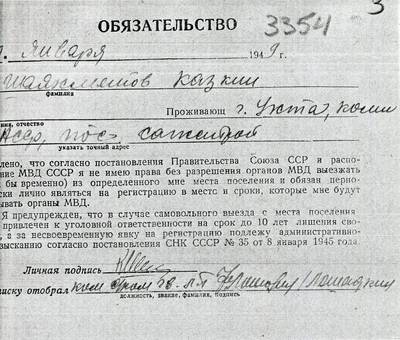 3
ОБЯЗАТЕЛЬСТВО 3354
января 1949 г.
Шаяхметов Казкии
фамилия
ния, отчество Проживающ г. Ухта, Коми
АССР, пос.
указать точный адрес
лено, что согласно постановления Правительства Союза ССР и распо-
ение МВД СССР я не имею права без разрешения органов МВД выезжать
бы временно) из определенного мне места поселения и обязан перио-
ски лично являться на регистрацию в место и сроки, которые мне будут
ывать органы МВД.
Я предупрежден, что в случае самовольного выезда с места поселения
привлечен к уголовной ответственности на срок до 10 лет лишения сво-
, а за несвоевременную явку на регистрацию подлежу административно-
взысканию согласно постановления СНК СССР № 35 от 8 января 1945 года.
Личная подпись
иску отобрал
должность, звание, фамилия, подпись